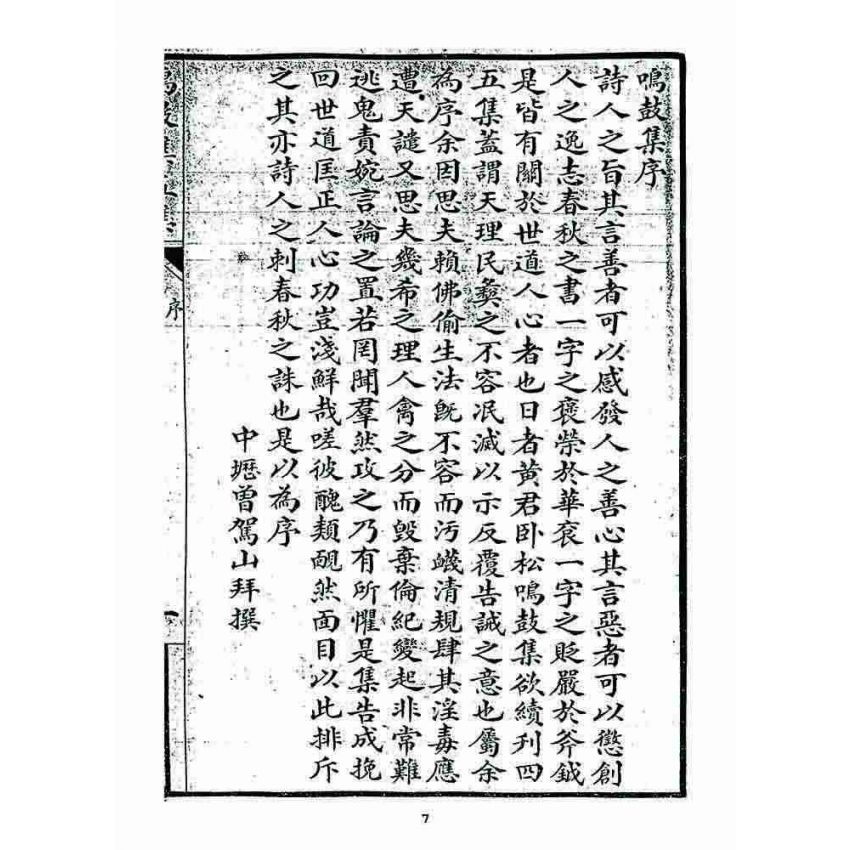 鳴鼓集序
詩人之旨其言善者可以感發人之善心其言惡者可以懲創
人之逸志春秋之書一字之褒榮於華袞一字之貶嚴於斧鉞
是皆有關於世道人心者也日者黃君卧松鳴鼓集欲續刊四
五集蓋謂天理民彝之不容冺滅以示反覆告誡之意也屬余
為序余因思夫賴佛偷生法旣不容而汚衊清規肆其淫毒應
遭天譴又思夫幾希之理人禽之分而毀棄倫紀變起非常難
逃鬼責婉言論之置若罔聞羣然攻之乃有所懼是集告成挽
回世道匡正人心功豈淺鮮哉嗟彼醜類靦然面目以此排斥
之其亦詩人之刺春秋之誅也是以為序
中壢曾駕山拜撰
序
一
7